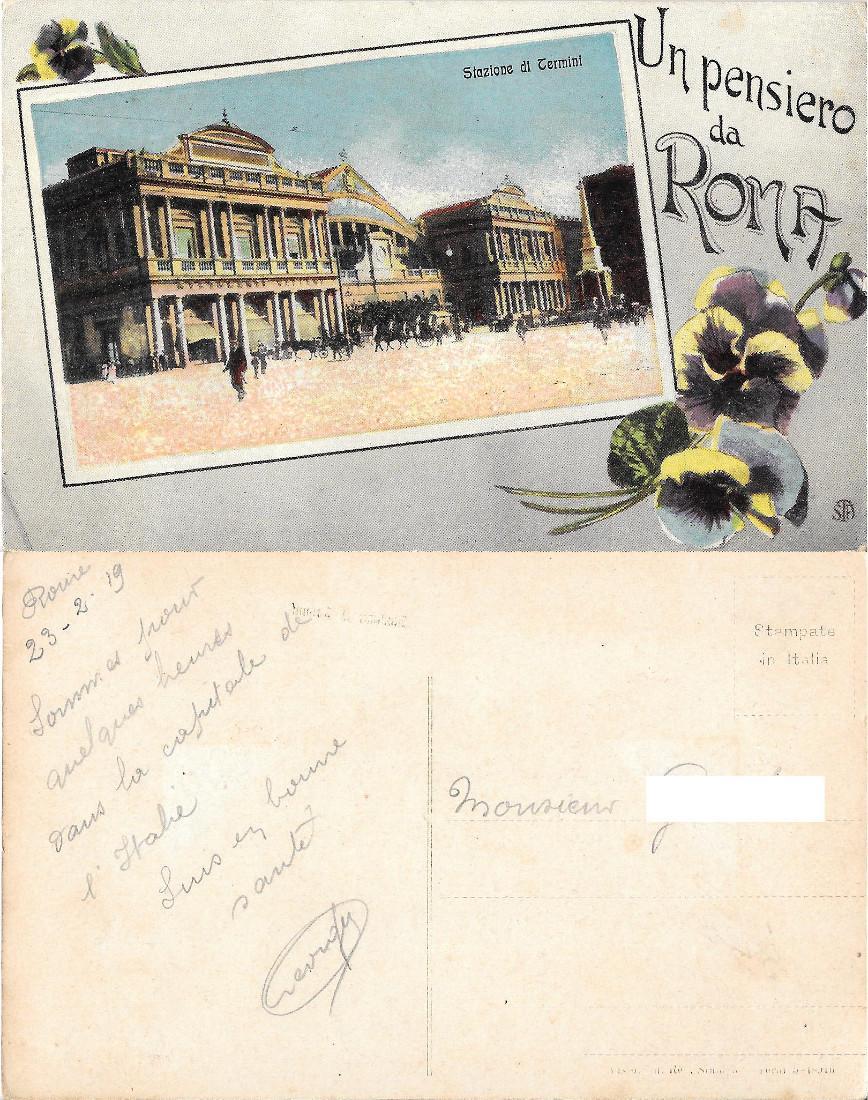 Stazione di Termini
Un pensiero
da
ROMA
STA
Rome
23-2-19
Sommes pour
quelques heures
dans la capitale de
l'Italie
Suis en bonne
santé
Stampato
in Italia
Monsieur